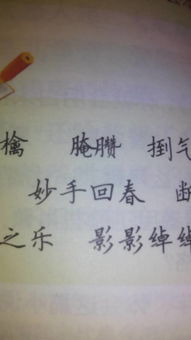 檎 腌臜 捯气
妙手回春 断
之乐 影影绰绰